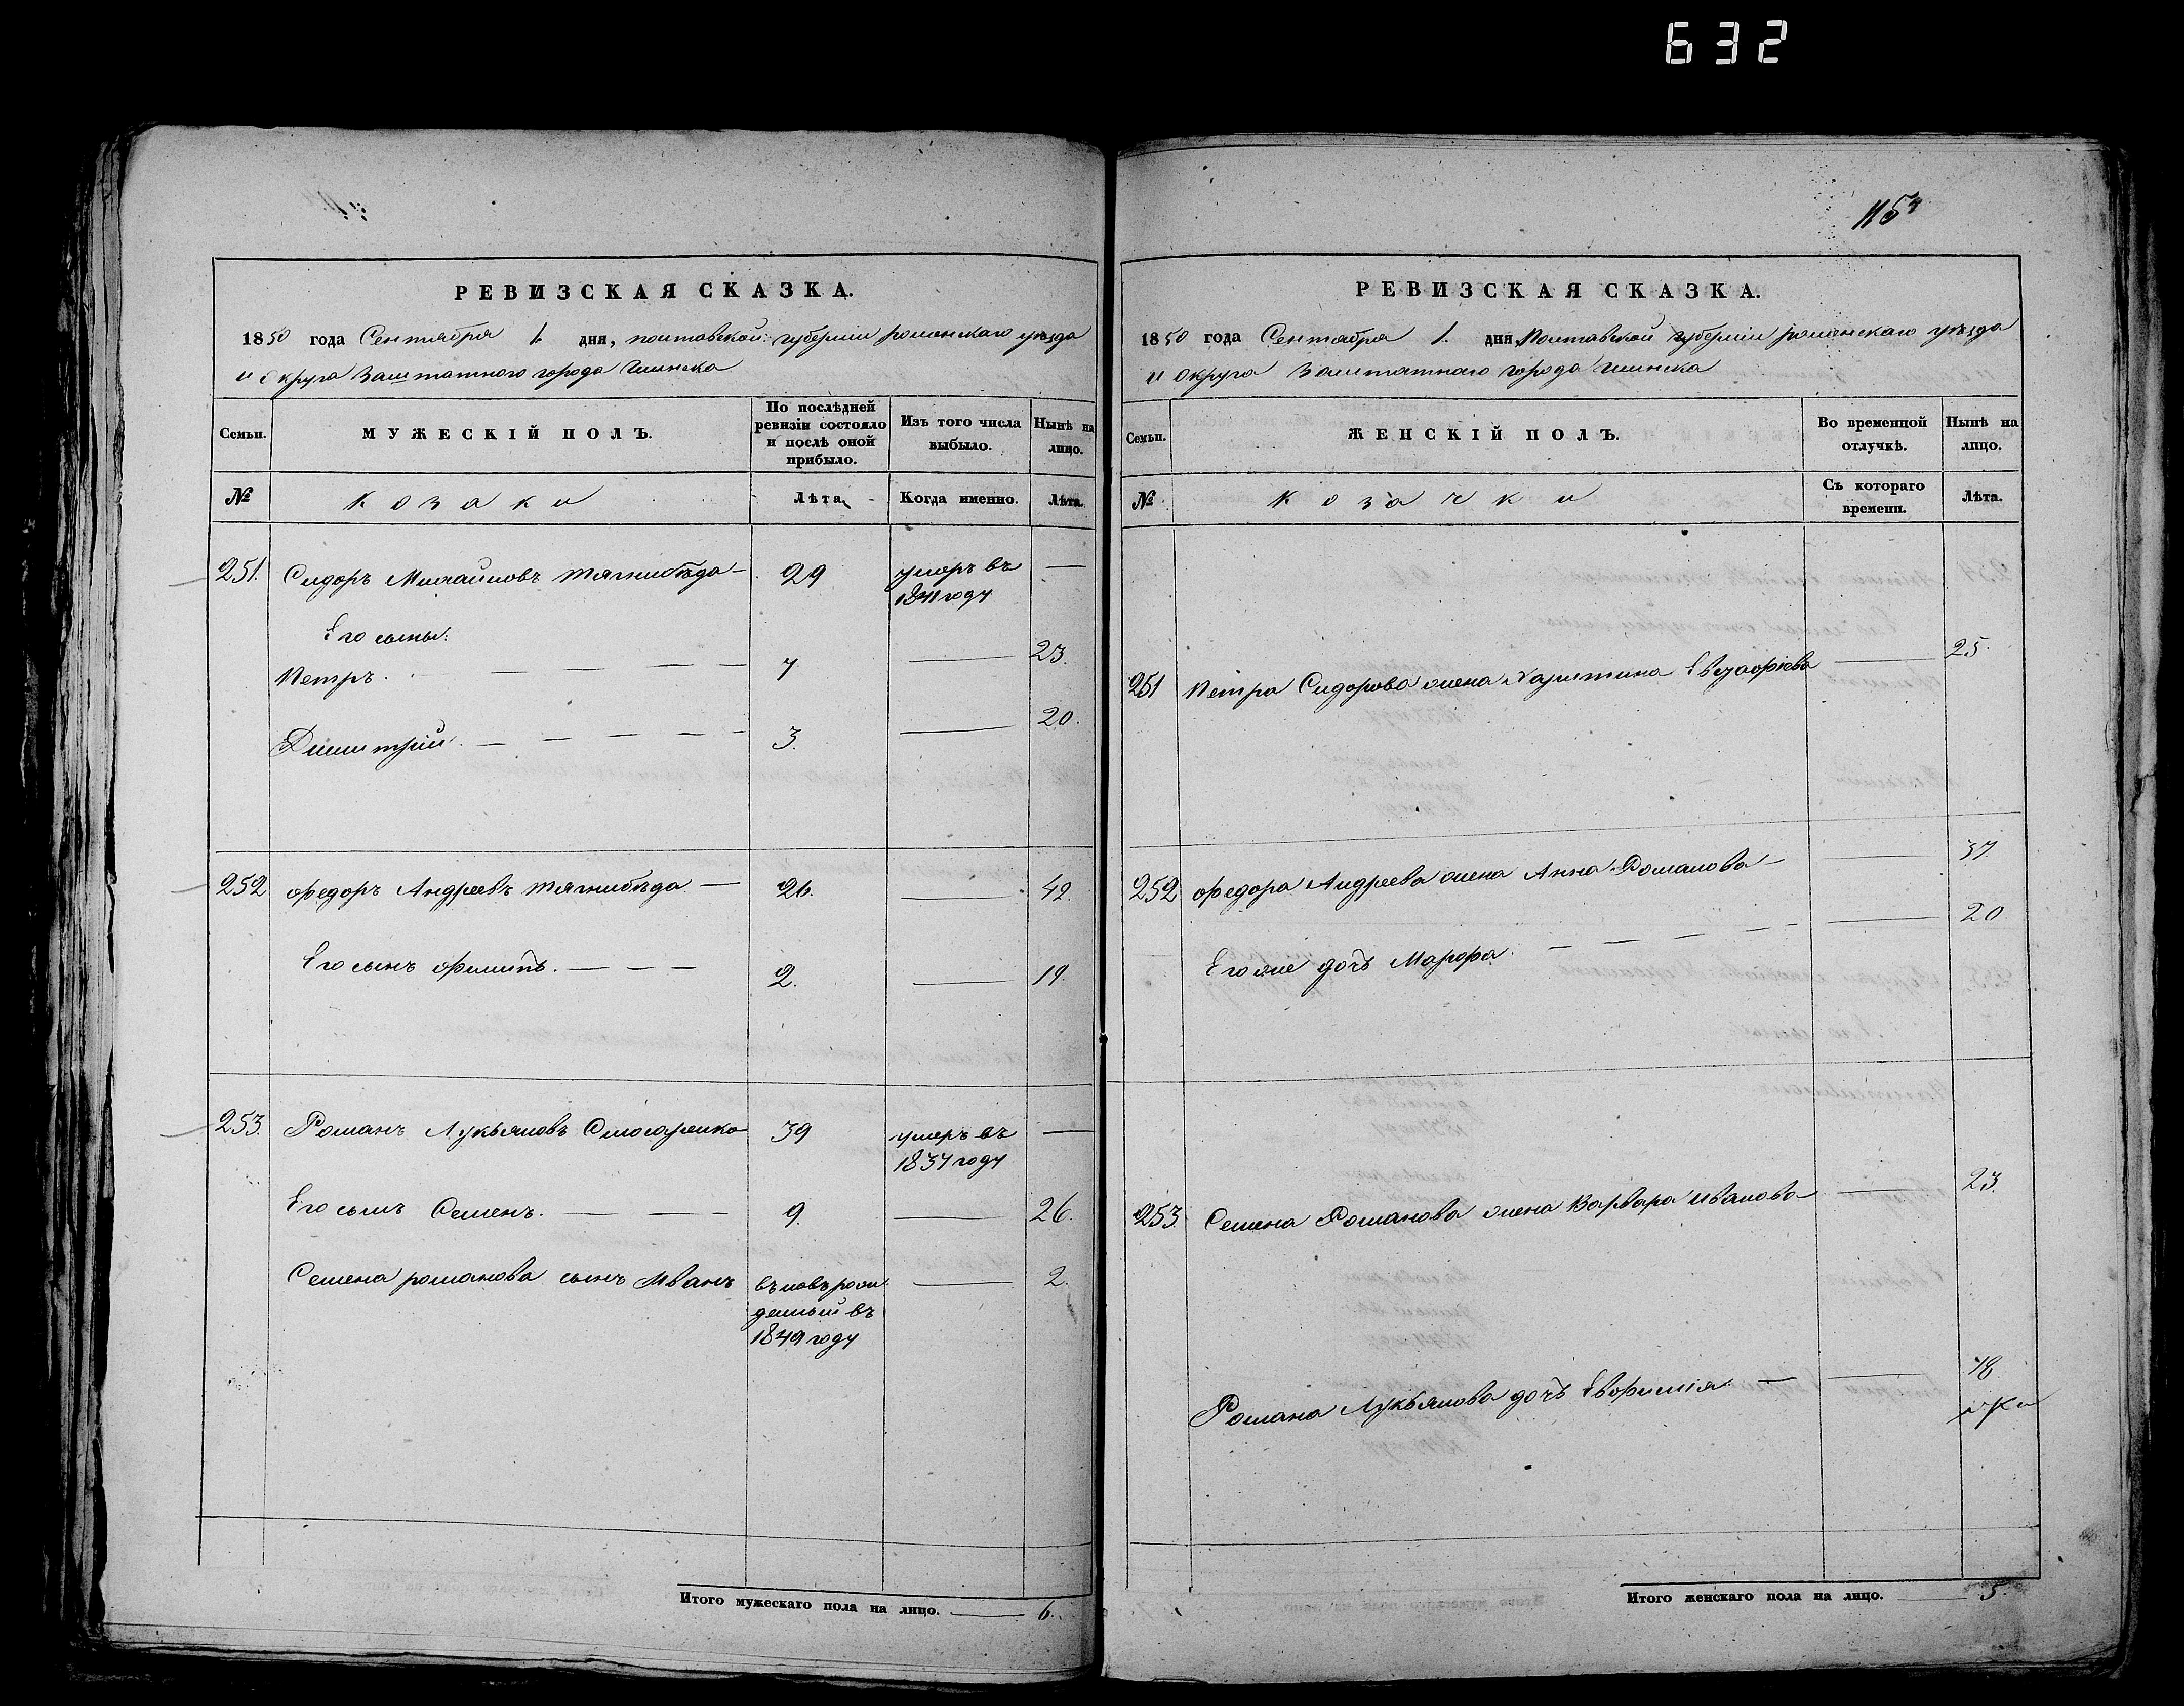 632
115
РЕВИЗСКАЯ СКАЗКА.
1850 года Сентября 1. дня, полтавской губернiи роменскаго уѣзда
и округа заштатного города Глинска
Семьи. МУЖЕСКIЙ ПОЛЪ. По послѣдней ревизiи состояло и послѣ оной прибыло. Изъ того числа выбыло. Нынѣ на лицо.
№ козаки Лѣта. Когда именно. Лѣта.
251. Сидоръ Михайловъ тягнибѣда 29 умеръ въ —
1841 году
Его сыны:
Петръ. — — — — 7 — 23.
Димитрiй. — — — — 3. — 20.
252 Федоръ Андреевъ тягнибѣда — 26. — 42.
Его сынъ Филипъ. — — — 2. — 19.
253. Романъ Лукьяновъ 39 умеръ въ —
1837 году
Его сынъ Семенъ. — — — 9. — 26.
Семена романова сынъ Иванъ вновь рож — 2.
денный въ
1849 году
Итого мужескаго пола на лицо. — 6.
РЕВИЗСКАЯ СКАЗКА.
1850 года Сентября 1. дня, Полтавской губернiи роменскаго уѣзда
и округа заштатнаго города Глинска
Семьи. ЖЕНСКIЙ ПОЛЪ. Во временной отлучкѣ. Нынѣ на лицо.
№ козачки Съ котораго времени. Лѣта.
251 Петра Сидорова жена Харитина — 25.
252 Федора Андреева жена Анна Романова — — 37
Его же дочь Марфа. — — — — — 20
253 Семена Романова жена Варвара Иванова — — 23.
Романа Лукьянова дочь Евфимiя — — 18
Итого женскаго пола на лицо. — 5.